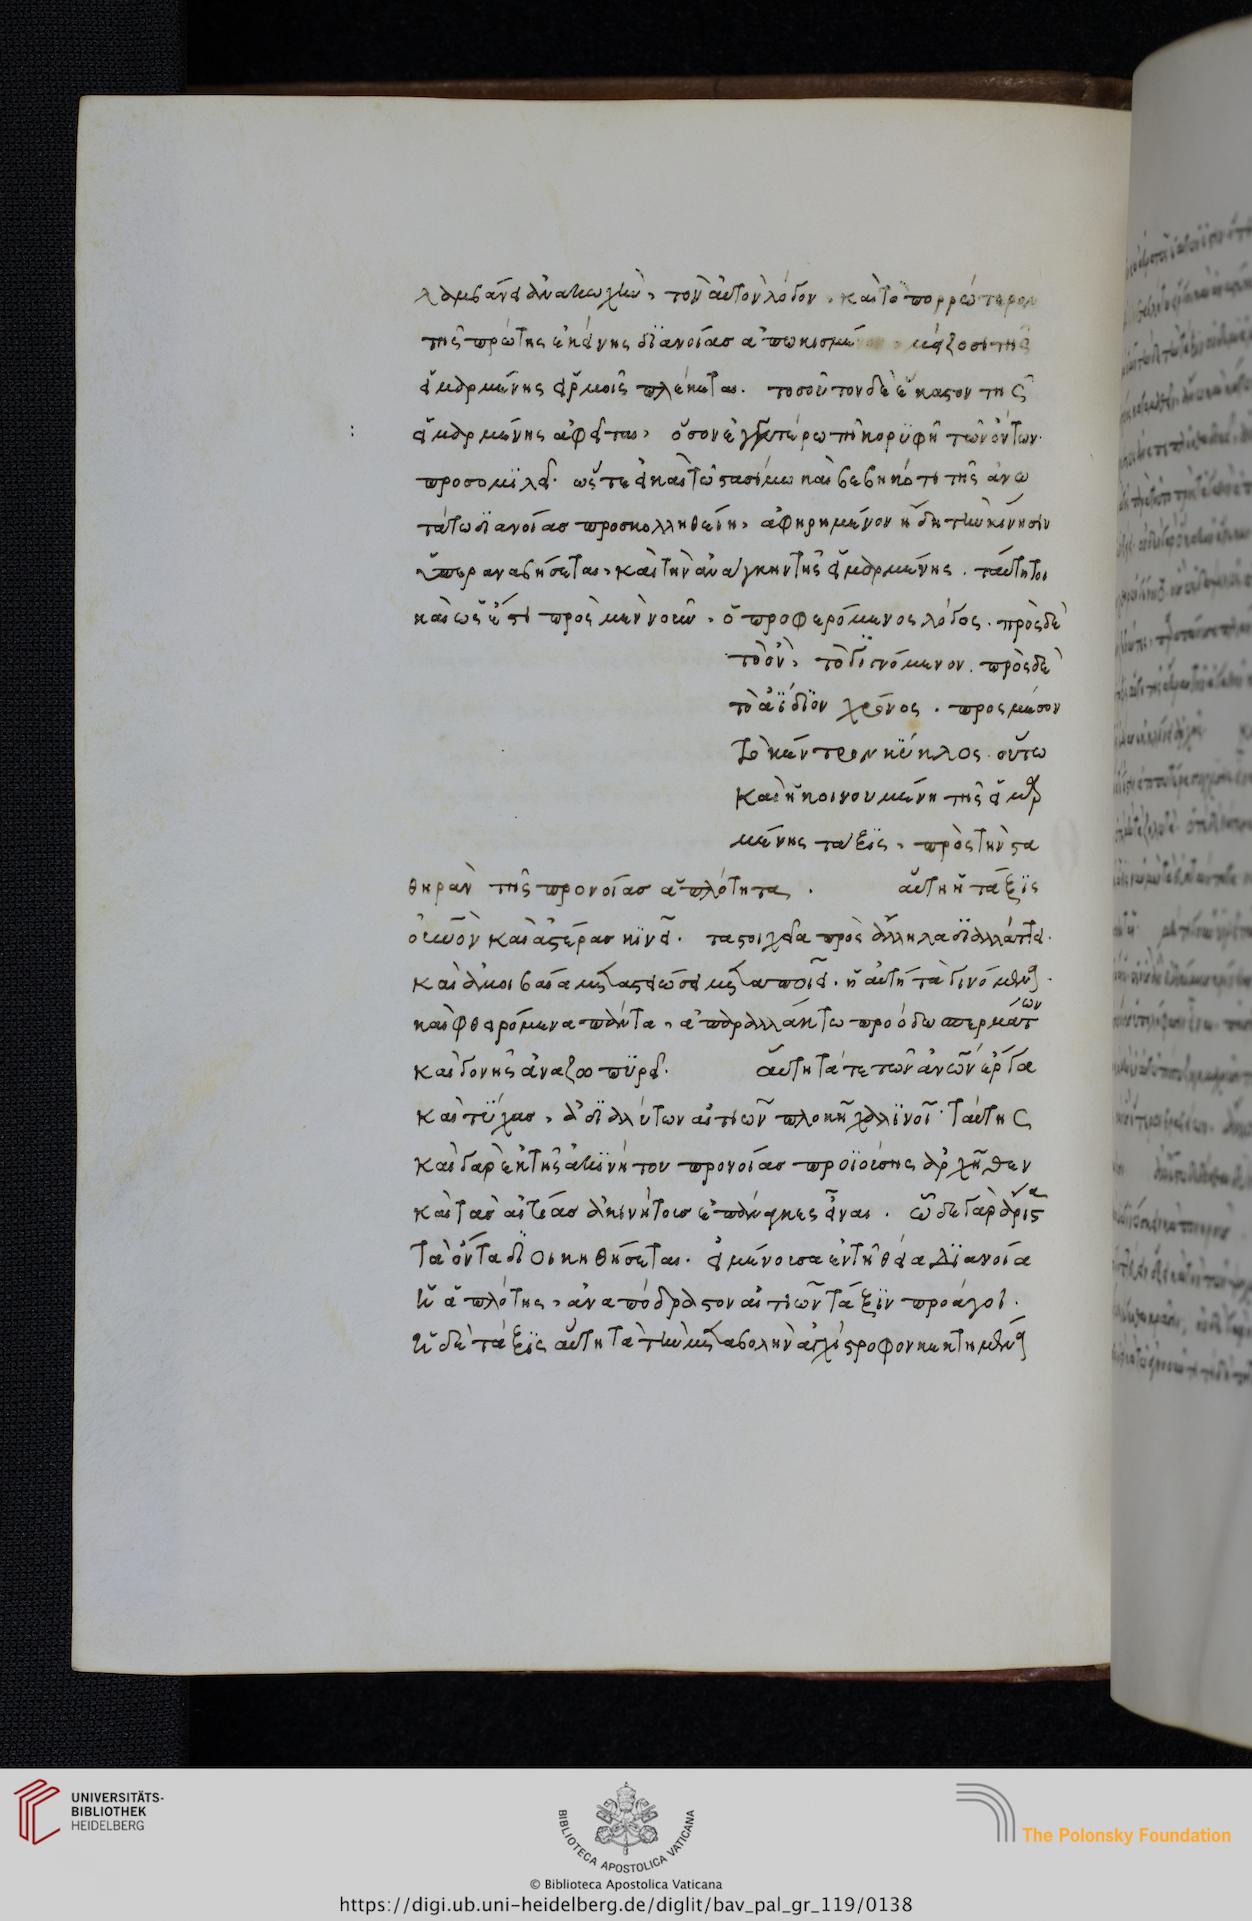 λαμβάνει ἀνακωχήν, τὸν αὐτὸν λόγον, καὶ τὸ πορρώτερον
τῆς πρώτης ἐκείνης διανοίας ἀπωκισμένον, μείζοσι τῆς
εἱμαρμένης εἱρμοῖς πλέκεται. τοσοῦτον δὲ ἕκαστον τῆς
εἱμαρμένης ἀφεῖται, ὅσον ἐγγυτέρω τῇ κορυφῇ τῶν ὄντων
προσομιλεῖ. ὥστε εἰ καὶ τῷ στασίμω καὶ βεβηκότι τῆς ἀνω
τάτω διανοίας προσκολληθείη, ἀφῃρημένον ἤδη τὴν κίνησιν
ὑπεραναβήσεται, καὶ τὴν ἀνάγκην τῆς εἱμαρμένης. ταύτη τοι
καὶ ὡς ἔστι πρὸς μὲν νοῦν, ὁ προφερόμενος λόγος. πρὸς δὲ
τὸ ὂν, τὸ γινόμενον. πρὸς δὲ
τὸ ἀΐδιον χρόνος. πρὸς μέσον
τὸ κέντρον κύκλος. οὕτω
καὶ ἡ κινουμένη τῆς εἱμαρ
μένης τάξις, πρὸς τὴν στα
θηρὰν τῆς προνοίας ἁπλότητα. αὕτη ἡ τάξις
οὐνὸν καὶ ἀστέρας κινεῖ. τὰ στοιχεῖα πρὸς ἄλληλα διαλλάττει.
καὶ ἀμοιβαία μεταστειώσει μεταποιεῖ. ἡ αὐτὴ τὰ γινόμενα
καὶ φθειρόμενα πάντα, ἀπαραλλάκτω προόδω σπερμάτων
καὶ γονῆς ἀναζωπυρεῖ. αὕτη τά τε τῶν ἀνῶν ἔργα
καὶ τύχας, ἀδιαλύτων αἰτιῶν πλοκῇ χαλινοῖ. ταύτης
καὶ γὰρ ἐκ τῆς ἀκινήτου προνοίας προϊούσης ἀρχῆθεν
καὶ τὰς αἰτίας ἀκινήτους ἐπάναγκες εἶναι. ὧδε γὰρ ἄριστα
τὰ ὄντα διοικηθήσεται. εἰ μένουσα ἐν τῇ θεία διανοία
ἡ ἁπλότης, ἀναπόδραστον αἰτιῶν τάξιν προάγοι.
ἡ δὲ τάξις αὕτη τὰ τὴν μεταβολὴν ἀγχίστροφον κεκτημένα
UNIVERSITÄTS-
BIBLIOTHEK
HEIDELBERG
BIBLIOTECA APOSTOLICA VATICANA
The Polonsky Foundation
© Biblioteca Apostolica Vaticana
https://digi.ub.uni-heidelberg.de/diglit/bav_pal_gr_119/0138